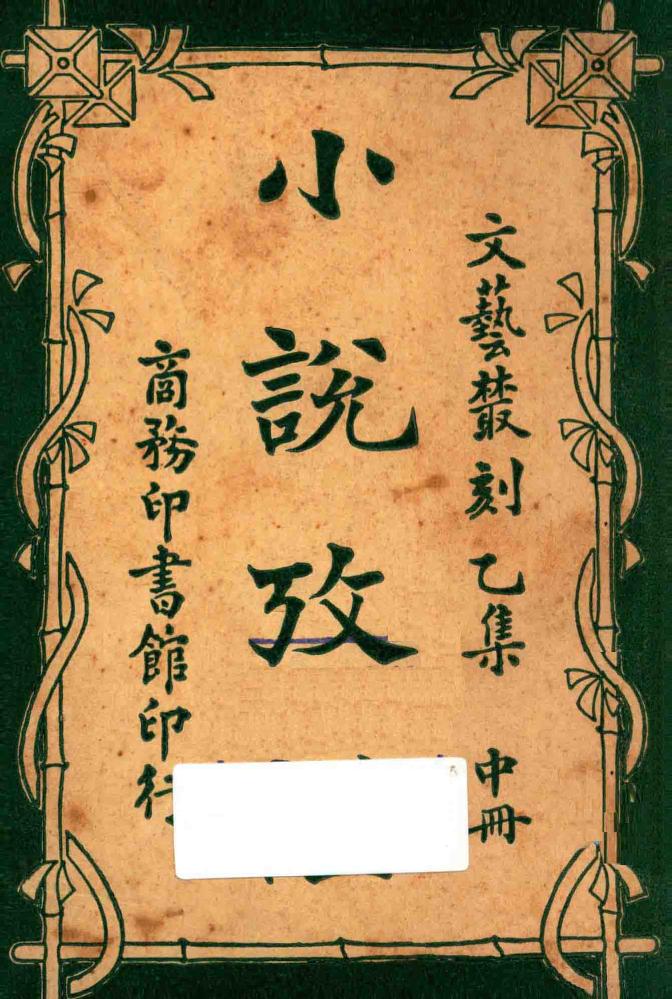 文藝叢刻乙集 中冊
小說攷
商務印書館印行